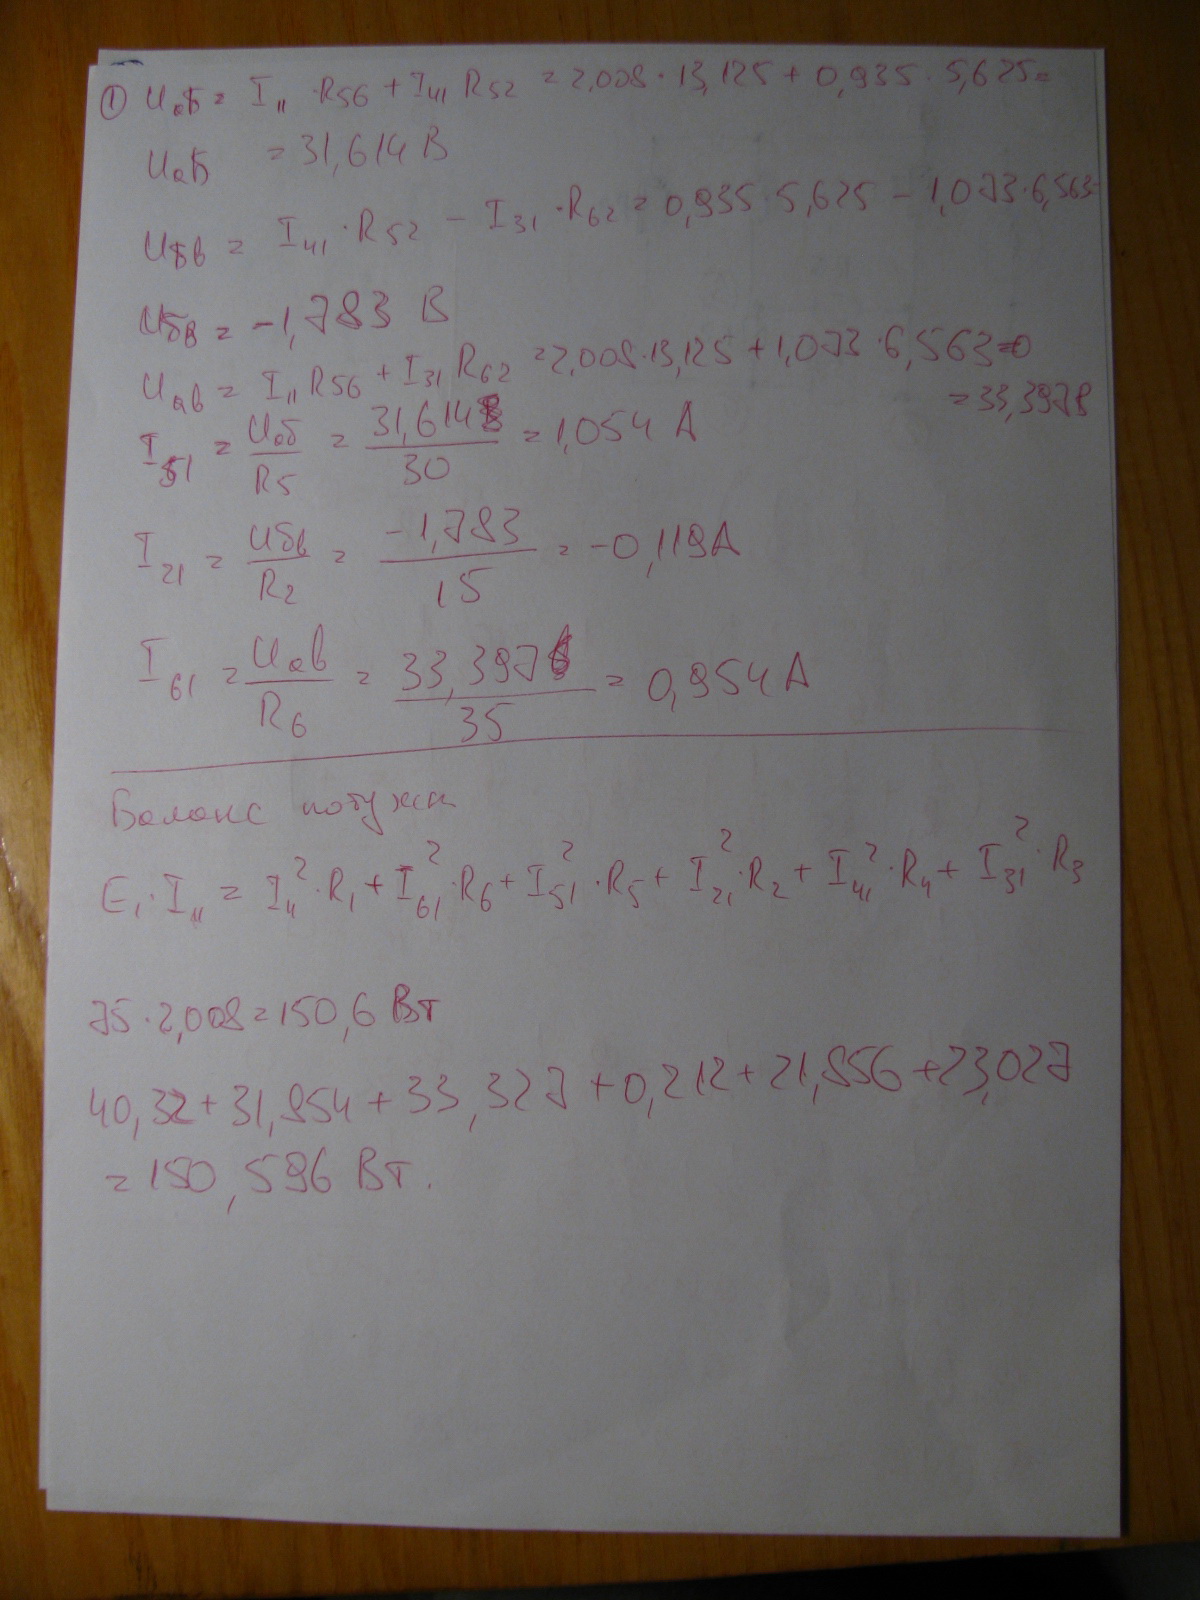 ① Uаб = I₁₁ · R56 + I₄₁ R52 = 2,008 · 13,125 + 0,935 · 5,625 =
Uаб = 31,614 В
Uбв = I₄₁ · R52 − I₃₁ · R62 = 0,935 · 5,625 − 1,073 · 6,563
Uбв = −1,783 В
Uав = I₁₁ R56 + I₃₁ R62 = 2,008 · 13,125 + 1,073 · 6,563 =
= 33,397В
I₅₁ = Uаб / R5 = 31,614 / 30 = 1,054 А
I₂₁ = Uбв / R2 = −1,783 / 15 = −0,119А
I₆₁ = Uав / R6 = 33,397 / 35 = 0,954 А
Баланс потужн
E₁ · I₁₁ = I₁₁² · R₁ + I₆₁² · R₆ + I₅₁² · R₅ + I₂₁² · R₂ + I₄₁² · R₄ + I₃₁² · R₃
75 · 2,008 = 150,6 Вт
40,32 + 31,854 + 33,327 + 0,212 + 21,856 + 23,027
= 150,596 Вт.